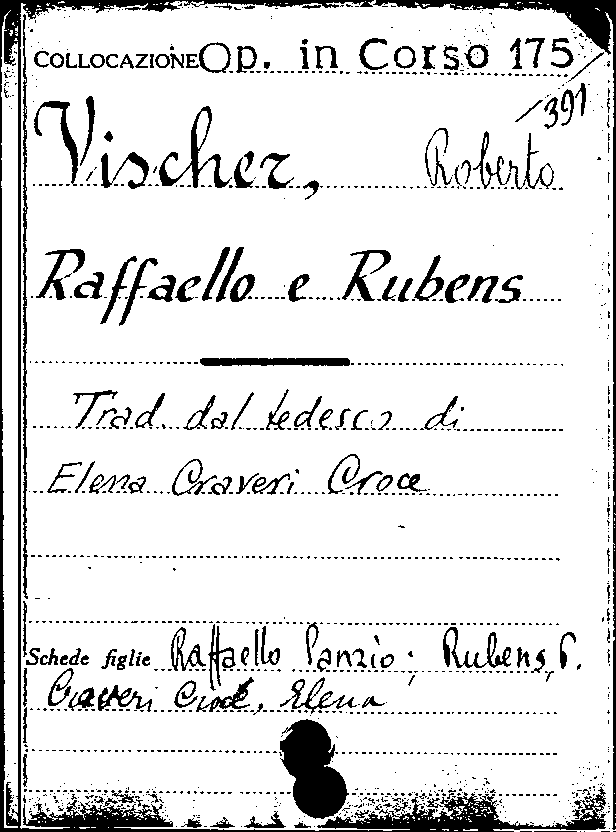 COLLOCAZIONE Op. in Corso 175
/391
Vischer, Roberto
Raffaello e Rubens
Trad. dal tedesco di
Elena Craveri Croce
Schede figlie Raffaello Sanzio; Rubens, P.
Craveri Croce, Elena